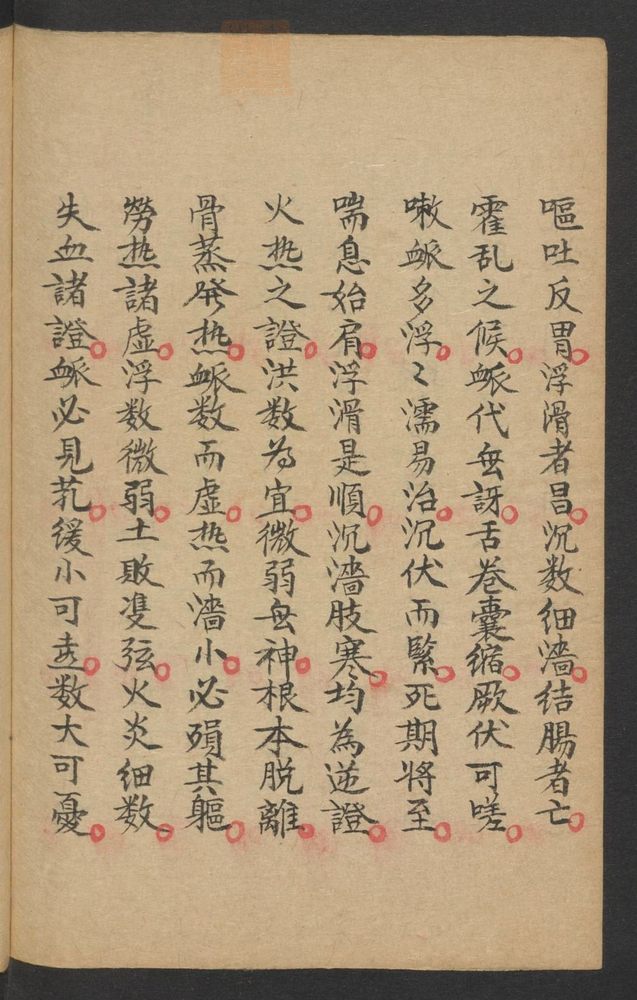 嘔吐反胃浮滑者昌沉数細濇结腸者亡
霍乱之候脈代毋訝舌卷囊缩厥伏可嗟
嗽脈多浮〻濡易治沉伏而緊死期将至
喘息始肩浮滑是順沉濇肢寒均為逆證
火热之證洪数为宜微弱無神根本脱離
骨蒸発热脈数而虚热而濇小必殞其軀
勞热諸虚浮数微弱土敗雙弦火炎细数
失血諸證脈必見芤缓小可數大可憂